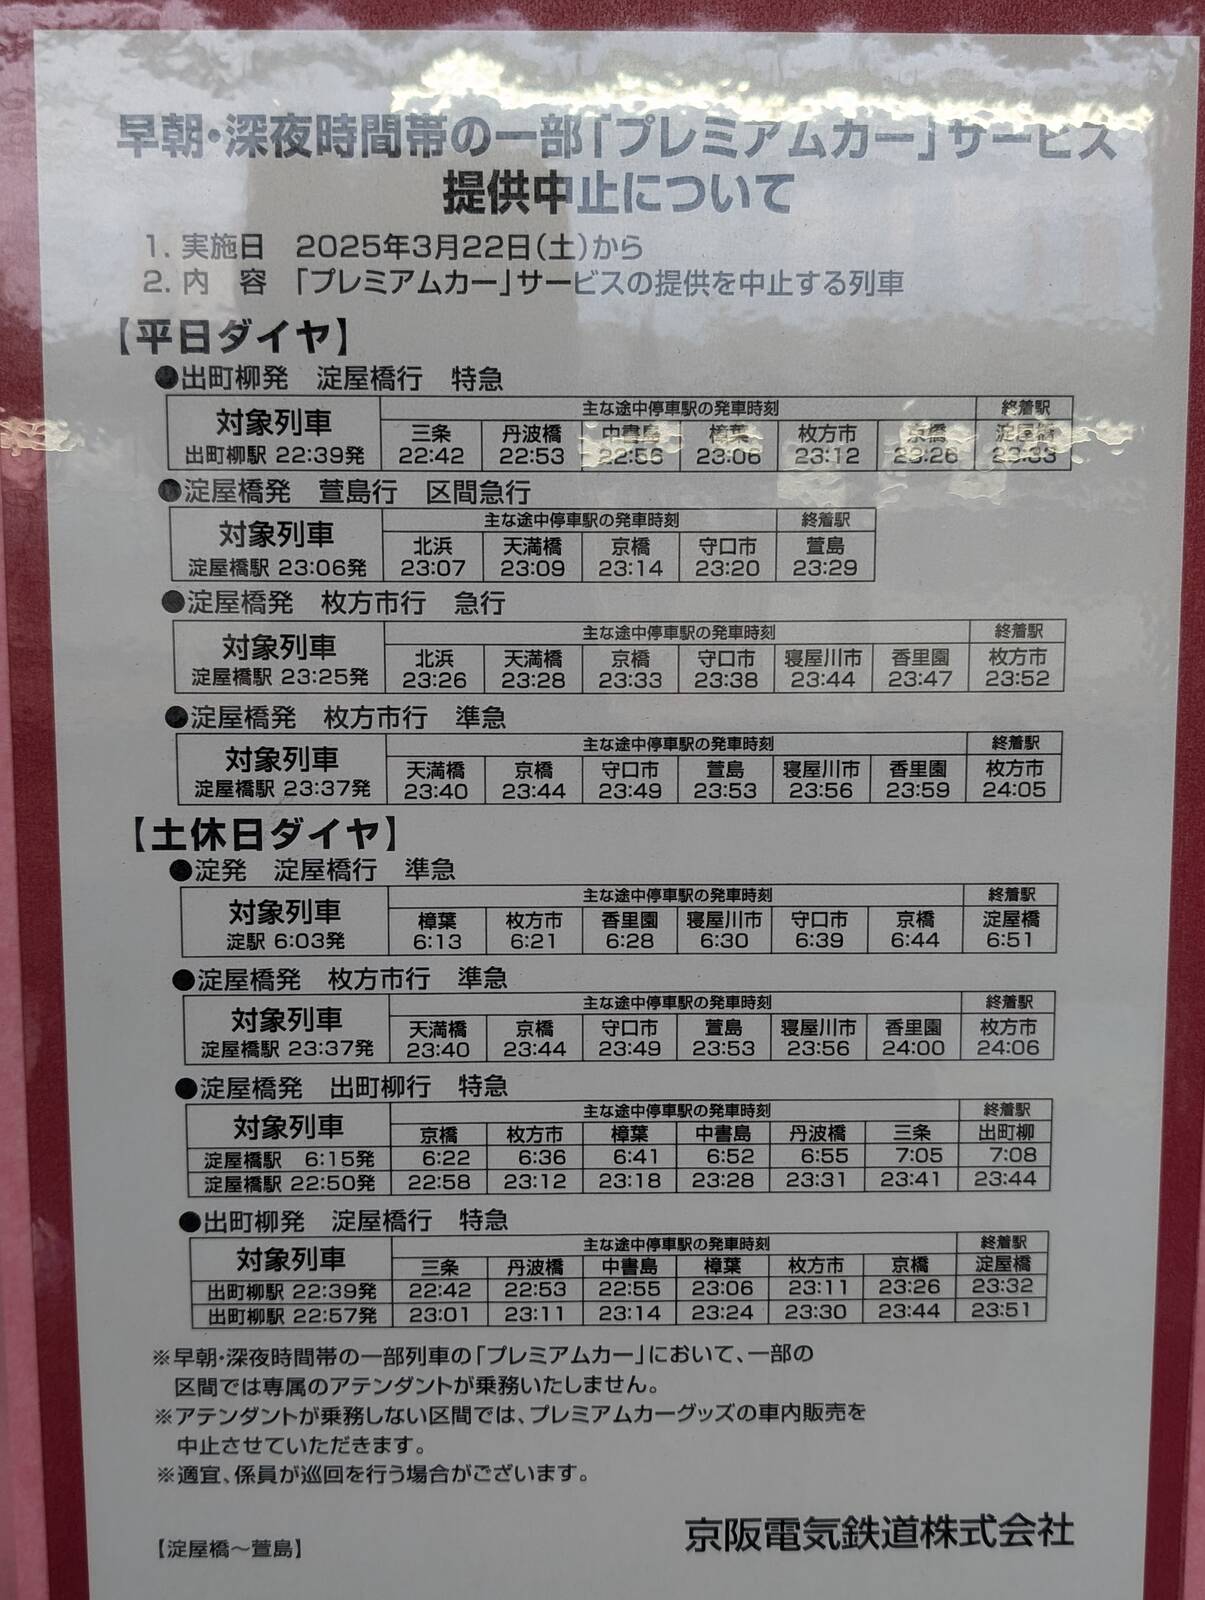 早朝・深夜時間帯の一部「プレミアムカー」サービス
提供中止について
1. 実施日 2025年3月22日(土)から
2. 内 容 「プレミアムカー」サービスの提供を中止する列車
【平日ダイヤ】
●出町柳発 淀屋橋行 特急
対象列車 主な途中停車駅の発車時刻 終着駅
三条 丹波橋 中書島 樟葉 枚方市 京橋 淀屋橋
出町柳駅 22:39発 22:42 22:53 22:56 23:06 23:12 23:26 23:33
●淀屋橋発 萱島行 区間急行
対象列車 主な途中停車駅の発車時刻 終着駅
北浜 天満橋 京橋 守口市 萱島
淀屋橋駅 23:06発 23:07 23:09 23:14 23:20 23:29
●淀屋橋発 枚方市行 急行
対象列車 主な途中停車駅の発車時刻 終着駅
北浜 天満橋 京橋 守口市 寝屋川市 香里園 枚方市
淀屋橋駅 23:25発 23:26 23:28 23:33 23:38 23:44 23:47 23:52
●淀屋橋発 枚方市行 準急
対象列車 主な途中停車駅の発車時刻 終着駅
天満橋 京橋 守口市 萱島 寝屋川市 香里園 枚方市
淀屋橋駅 23:37発 23:40 23:44 23:49 23:53 23:56 23:59 24:05
【土休日ダイヤ】
●淀発 淀屋橋行 準急
対象列車 主な途中停車駅の発車時刻 終着駅
樟葉 枚方市 香里園 寝屋川市 守口市 京橋 淀屋橋
淀駅 6:03発 6:13 6:21 6:28 6:30 6:39 6:44 6:51
●淀屋橋発 枚方市行 準急
対象列車 主な途中停車駅の発車時刻 終着駅
天満橋 京橋 守口市 萱島 寝屋川市 香里園 枚方市
淀屋橋駅 23:37発 23:40 23:44 23:49 23:53 23:56 24:00 24:06
●淀屋橋発 出町柳行 特急
対象列車 主な途中停車駅の発車時刻 終着駅
京橋 枚方市 樟葉 中書島 丹波橋 三条 出町柳
淀屋橋駅 6:15発 6:22 6:36 6:41 6:52 6:55 7:05 7:08
淀屋橋駅 22:50発 22:58 23:12 23:18 23:28 23:31 23:41 23:44
●出町柳発 淀屋橋行 特急
対象列車 主な途中停車駅の発車時刻 終着駅
三条 丹波橋 中書島 樟葉 枚方市 京橋 淀屋橋
出町柳駅 22:39発 22:42 22:53 22:55 23:06 23:11 23:26 23:32
出町柳駅 22:57発 23:01 23:11 23:14 23:24 23:30 23:44 23:51
※早朝・深夜時間帯の一部列車の「プレミアムカー」において、一部の
区間では専属のアテンダントが乗務いたしません。
※アテンダントが乗務しない区間では、プレミアムカーグッズの車内販売を
中止させていただきます。
※適宜、係員が巡回を行う場合がございます。
京阪電気鉄道株式会社
【淀屋橋～萱島】